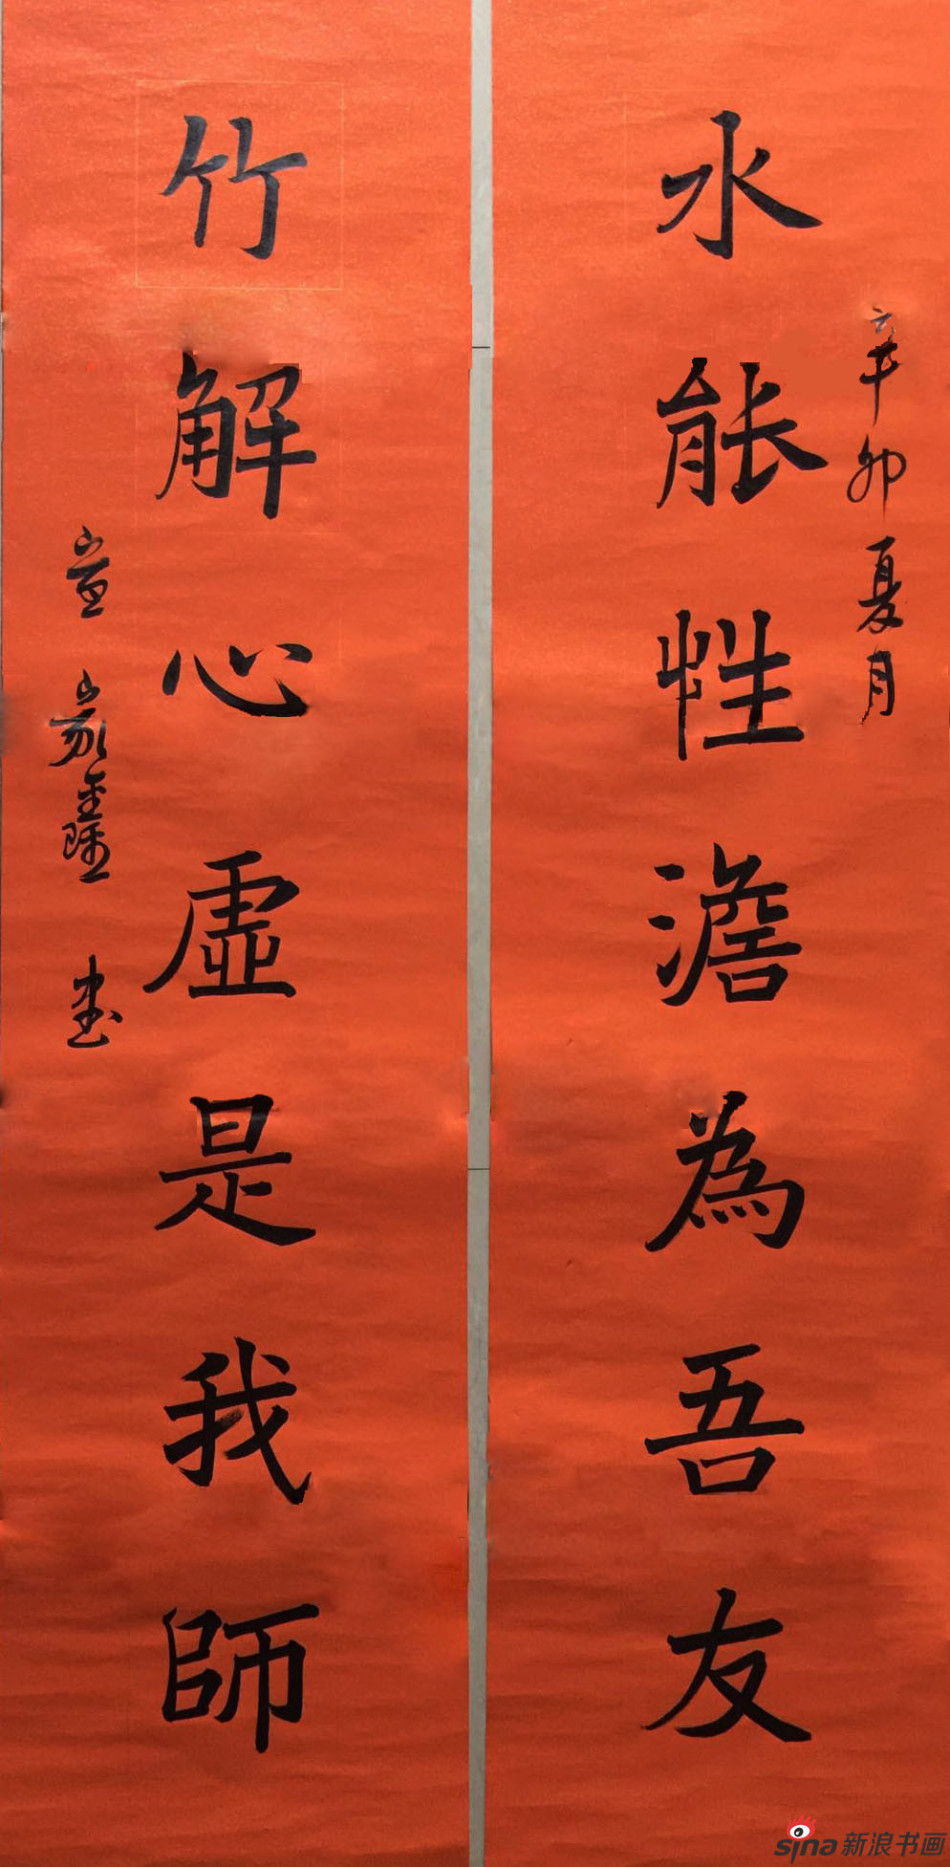 水能性澹為吾友
辛卯夏月
竹解心虛是我師
書
sina新浪书画